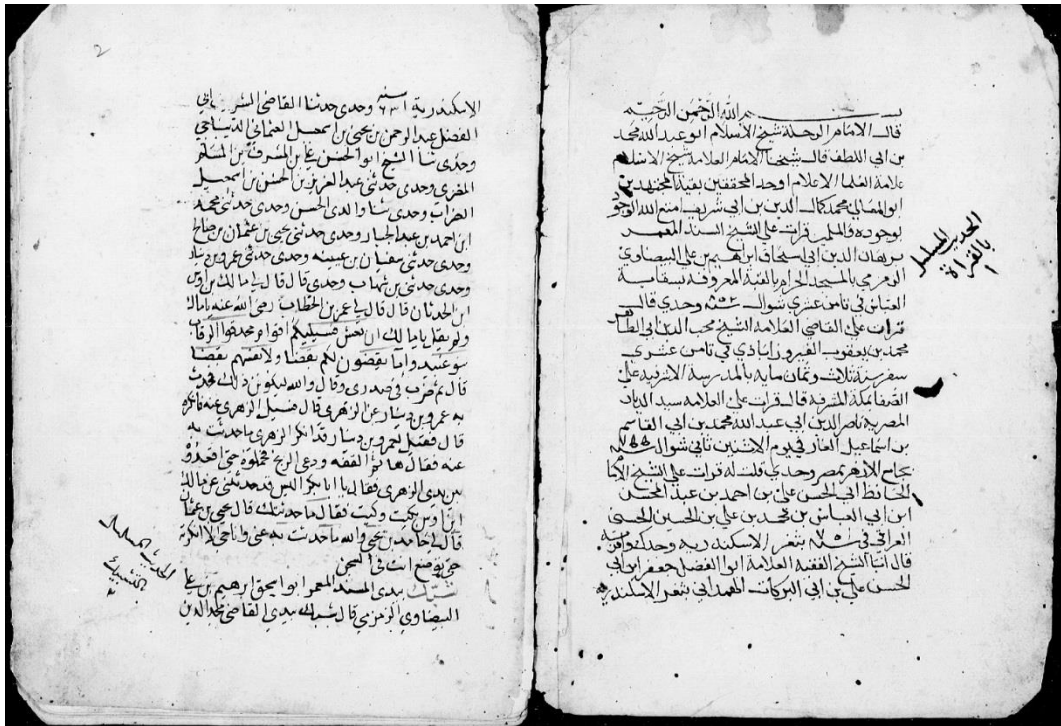 بسم الله الرحمن الرحيم
قال الامام الرحلة شيخ الاسلام ابو عبد الله محمد
بن ابي اللطف قال شيخنا الامام العلامة شيخ الاسلام
علامة العلما الاعلام اوحد المحققين بقية المجتهدين
ابو المعالي محمد كمال الدين بن ابي شريف امتع الله الوجود
بوجوده والمسلمين قرات على الشيخ المسند المعمر
برهان الدين ابي اسحاق ابراهيم بن علي البيضاوي
الزمزمي بالمسجد الحرام بالقبة المعروفة بسقاية
العباس في ثامن عشري شوال وحدي قال
قرات على القاضي العلامة الشيخ مجد الدين ابي الطاهر
محمد بن يعقوب الفيروزاباذي في ثامن عشري
سفر سنة ثلاث وثمان مايه بالمدرسة الاشرفيه على
الصفا بمكة المشرفه قال قرات على العلامه سيد الديار
المصرية ناصر الدين ابي عبد الله محمد بن ابي القاسم
بن اسماعيل الفارقي يوم الاثنين ثاني شوال
بجامع الازهر بمصر وحدي قلت له قرات على الشيخ الامام
الحافظ ابي الحسن علي بن احمد بن عبد المحسن
ابن ابي العباس بن محمد بن علي بن الحسين الحسني
العراقي في بثغر الاسكندريه وحدك
قال انبا الشيخ الفقيه العلامة ابو الفضل جعفر ابن ابي
الحسن علي بن ابي البركات الهمداني بثغر الاسكندريه
الحديث المسلسل
بالقراة
١
2
الاسكندرية سنه وحدي حدثنا القاضي الشريف ابي
الفضل عبد الرحمن بن يحيى بن اسمعيل العثماني الديباجي
وحدي ثنا الشيخ ابو الحسن علي بن المشرف بن المسلم
وحدي حدثني عبد العزيز بن الحسن بن اسمعيل
الضراب وحدي ثنا والدي الحسن وحدي حدثني محمد
ابن احمد بن عبد الجبار وحدي حدثني يحيى بن عثمان بن صالح
وحدي حدثني سفيان بن عيينه وحدي حدثني عمرو بن دينار
وحدي حدثني بن شهاب وحدي قال قال لي مالك بن اوس
ابن الحدثان قال قال لي عمر بن الخطاب رضي الله عنه يا مالك
يا مالك ان تعش فسيليكم اقوام
قال ثم ضرب في صدري وقال والله ليكونن ذلك فحدث
به عمرو بن دينار عن الزهري قال فسيل الزهري عنه فانكره
قال فقيل لعمرو بن دينار قد انكر الزهري ما حدثت به
عنه فقال
بين يدي الزهري فقال يا ابا بكر اليس قد حدثتني عن مالك
ابن اوس بكيت وكيت فقال ما حدثتك قال يحيى بن عثمان
والله ما حدثت به
انت في السجن
شبك بيدي المسند المعمر ابو اسحق ابرهيم بن علي
البيضاوي الزمزمي قال شبك بيدي القاضي مجد الدين
الحديث المسلسل
بالتشبيك